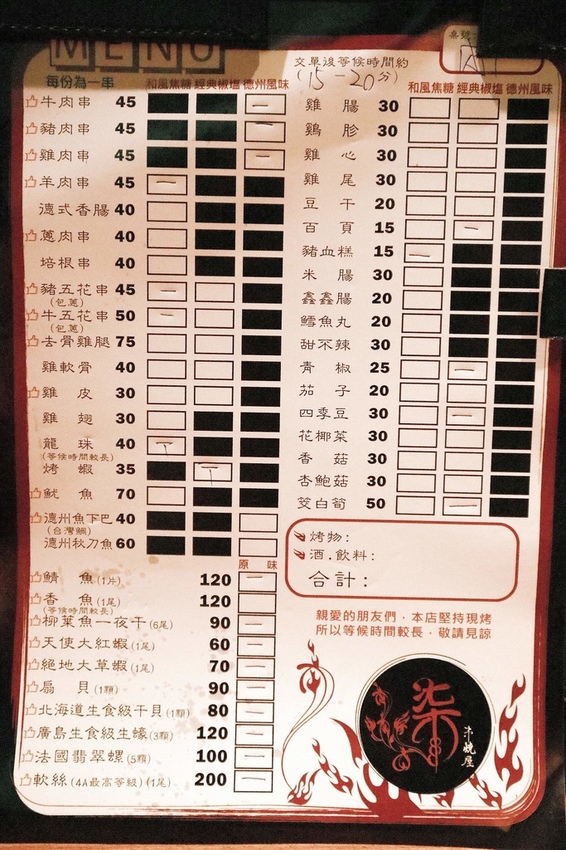 MENU
每份為一串
和風焦糖 經典椒塩 德州風味
牛肉串 45 一
豬肉串 45 一
雞肉串 45 一
羊肉串 45 一
德式香腸 40
蔥肉串 40
培根串 40
豬五花串 45 一
(包蔥)
牛五花串 50 一
(包蔥)
去骨雞腿 75
雞軟骨 40
雞皮 30
雞翅 30
龍珠 40 丅
(等候時間較長)
烤蝦 35 丅
魷魚 70
德州魚下巴 40
(台灣鯛)
德州秋刀魚 60
原味
鯖魚(1片) 120 一
香魚(1尾) 120
(等候時間較長)
柳葉魚一夜干(6尾) 90 一
天使大紅蝦(1尾) 60 一
絕地大草蝦(1尾) 70 一
扇貝(1顆) 90 一
北海道生食級干貝(1顆) 80 一
廣島生食級生蠔(3顆) 120 一
法國翡翠螺(5顆) 100 一
軟絲(4A最高等級)(1尾) 200 一
交單後等候時間約
(15-20分)
桌號:
和風焦糖 經典椒塩 德州風味
雞腸 30
雞胗 30
雞心 30
雞尾 30
豆干 20
百頁 15 一
豬血糕 15 一
米腸 30
鑫鑫腸 20
鱈魚丸 20
甜不辣 30
青椒 25 一
茄子 20
四季豆 30 一
花椰菜 30
香菇 30
杏鮑菇 30
筊白筍 50 一
烤物:
酒.飲料:
合計:
親愛的朋友們,本店堅持現烤
所以等候時間較長,敬請見諒
柒
串燒屋